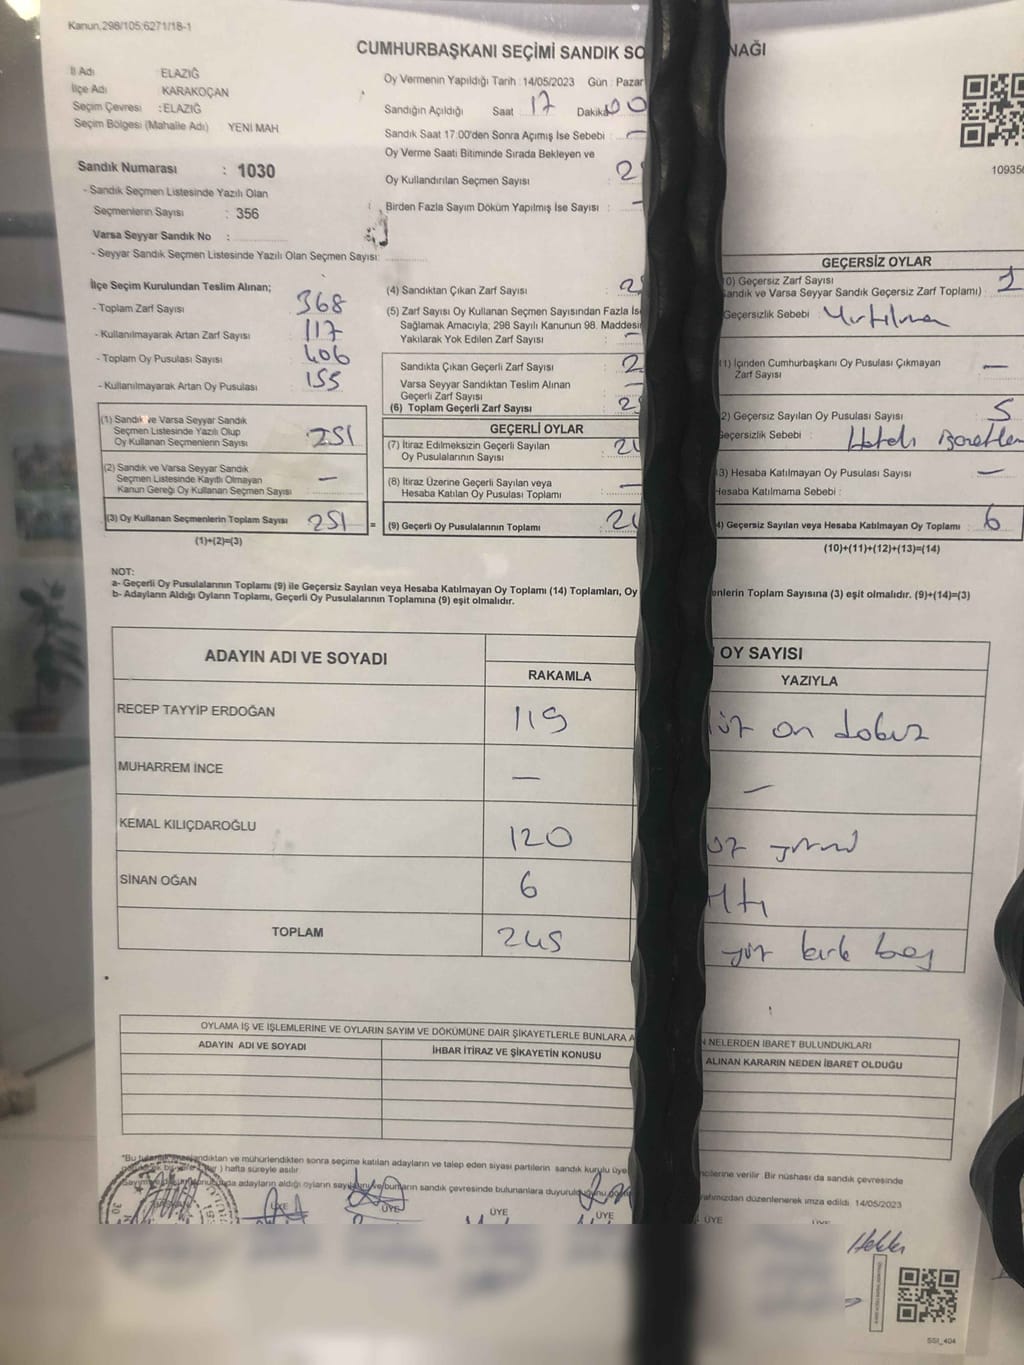 Kanun,298/105;6271/18-1
CUMHURBAŞKANI SEÇİMİ SANDIK SO NAĞI
İl Adı : ELAZIĞ
İlçe Adı : KARAKOÇAN
Seçim Çevresi : ELAZIĞ
Seçim Bölgesi (Mahalle Adı) YENİ MAH
Sandık Numarası : 1030
- Sandık Seçmen Listesinde Yazılı Olan
Seçmenlerin Sayısı : 356
Varsa Seyyar Sandık No :
- Seyyar Sandık Seçmen Listesinde Yazılı Olan Seçmen Sayısı:
Oy Vermenin Yapıldığı Tarih : 14/05/2023 Gün : Pazar
Sandığın Açıldığı Saat 17 Dakika 00
Sandık Saat 17.00'den Sonra Açımış İse Sebebi : —
Oy Verme Saati Bitiminde Sırada Bekleyen ve
Oy Kullandırılan Seçmen Sayısı :
Birden Fazla Sayım Döküm Yapılmış İse Sayısı : —
İlçe Seçim Kurulundan Teslim Alınan;
- Toplam Zarf Sayısı 368
- Kullanılmayarak Artan Zarf Sayısı 117
- Toplam Oy Pusulası Sayısı 406
- Kullanılmayarak Artan Oy Pusulası 155
(1) Sandık ve Varsa Seyyar Sandık
Seçmen Listesinde Yazılı Olup
Oy Kullanan Seçmenlerin Sayısı 251
(2) Sandık ve Varsa Seyyar Sandık
Seçmen Listesinde Kayıtlı Olmayan
Kanun Gereği Oy Kullanan Seçmen Sayısı —
(3) Oy Kullanan Seçmenlerin Toplam Sayısı 251 =
(1)+(2)=(3)
(4) Sandıktan Çıkan Zarf Sayısı
(5) Zarf Sayısı Oy Kullanan Seçmen Sayısından Fazla İs
Sağlamak Amacıyla; 298 Sayılı Kanunun 98. Maddesi
Yakılarak Yok Edilen Zarf Sayısı
Sandıkta Çıkan Geçerli Zarf Sayısı
Varsa Seyyar Sandıktan Teslim Alınan
Geçerli Zarf Sayısı
(6) Toplam Geçerli Zarf Sayısı
GEÇERLİ OYLAR
(7) İtiraz Edilmeksizin Geçerli Sayılan
Oy Pusulalarının Sayısı
(8) İtiraz Üzerine Geçerli Sayılan veya
Hesaba Katılan Oy Pusulası Toplamı
(9) Geçerli Oy Pusulalarının Toplamı
109350
GEÇERSİZ OYLAR
10) Geçersiz Zarf Sayısı
andık ve Varsa Seyyar Sandık Geçersiz Zarf Toplamı) : 1
Geçersizlik Sebebi : Yırtılma
1) İçinden Cumhurbaşkanı Oy Pusulası Çıkmayan
Zarf Sayısı —
2) Geçersiz Sayılan Oy Pusulası Sayısı : 5
Geçersizlik Sebebi : Hatalı
3) Hesaba Katılmayan Oy Pusulası Sayısı : —
Hesaba Katılmama Sebebi :
4) Geçersiz Sayılan veya Hesaba Katılmayan Oy Toplamı : 6
(10)+(11)+(12)+(13)=(14)
NOT:
a- Geçerli Oy Pusulalarının Toplamı (9) ile Geçersiz Sayılan veya Hesaba Katılmayan Oy Toplamı (14) Toplamları, Oy enlerin Toplam Sayısına (3) eşit olmalıdır. (9)+(14)=(3)
b- Adayların Aldığı Oyların Toplamı, Geçerli Oy Pusulalarının Toplamına (9) eşit olmalıdır.
ADAYIN ADI VE SOYADI OY SAYISI
RAKAMLA YAZIYLA
RECEP TAYYİP ERDOĞAN 119 yüz on dokuz
MUHARREM İNCE — —
KEMAL KILIÇDAROĞLU 120 üz yirmi
SİNAN OĞAN 6 Altı
TOPLAM 245 yüz kırk beş
OYLAMA İŞ VE İŞLEMLERİNE VE OYLARIN SAYIM VE DÖKÜMÜNE DAİR ŞİKAYETLERLE BUNLARA A N NELERDEN İBARET BULUNDUKLARI
ADAYIN ADI VE SOYADI İHBAR İTİRAZ VE ŞİKAYETİN KONUSU ALINAN KARARIN NEDEN İBARET OLDUĞU
andıktan ve mühürlendikten sonra seçime katılan adayların ve talep eden siyasi partilerin sandık kurulu üye ncilerine verilir Bir nüshası da sandık çevresinde
) hafta süreyle asılır.
adayların aldığı oyların sandık çevresinde bulunanlara duyurul rafımızdan düzenlenerek imza edildi 14/05/2023
ÜYE ÜYE ÜYE ÜYE ÜYE
SSI_404